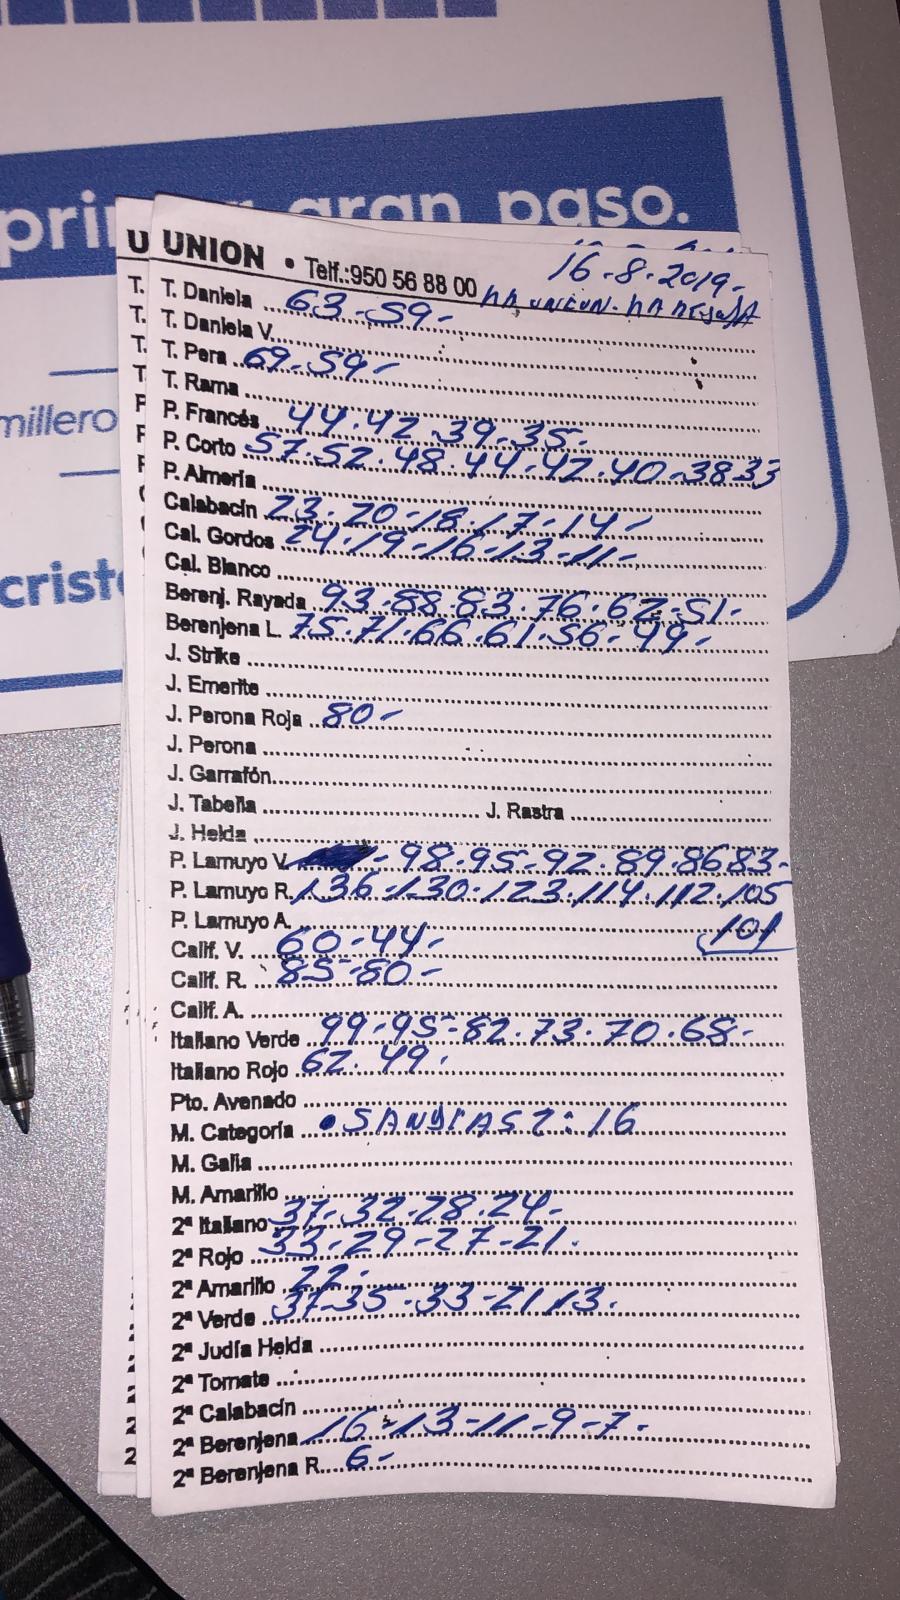 prim gran paso.
UNION • Telf.:950 56 88 00 16-8-2019-
LA UNION. LA REDONDA
T. Daniela 63-59-
T. Daniela V.
T. Pera 69-59-
T. Rama
P. Francés 44.42.39.35-
P. Corto 57.52.48.44.42.40-38 33
P. Almería
Calabacín 23.20-18.17-14-
Cal. Gordos 24.19-16-13-11-
Cal. Blanco
Berenj. Rayada 93-88.83.76.62-51-
Berenjena L. 75.71.66.61.56-49-
J. Strike
J. Emerite
J. Perona Roja 80-
J. Perona
J. Garrafón
J. Tabella J. Rastra
J. Helda
P. Lamuyo V. -98.95-92.89.86 83-
P. Lamuyo R. 136-130-123.114.112.105
P. Lamuyo A. 101
Calif. V. 60-44-
Calif. R. 85-80-
Calif. A.
Italiano Verde 99-95-82.73.70.68-
Italiano Rojo 62.49.
Pto. Avenado
M. Categoría •SANDIAS 2: 16
M. Galia
M. Amarillo
2ª Italiano 37-32-28.24-
2ª Rojo 33-29-27-21.
2ª Amarillo 22-
2ª Verde 37-35-33-21 13.
2ª Judía Helda
2ª Tomate
2ª Calabacín
2ª Berenjena 16-13-11-9-7-
2ª Berenjena R. 6-
millero
crist